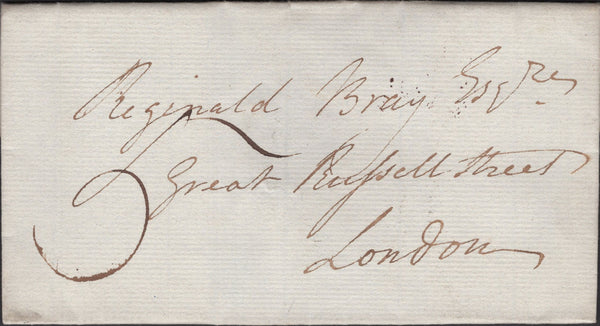 Reginald Bray Esqre
5
Great Russell Street
London